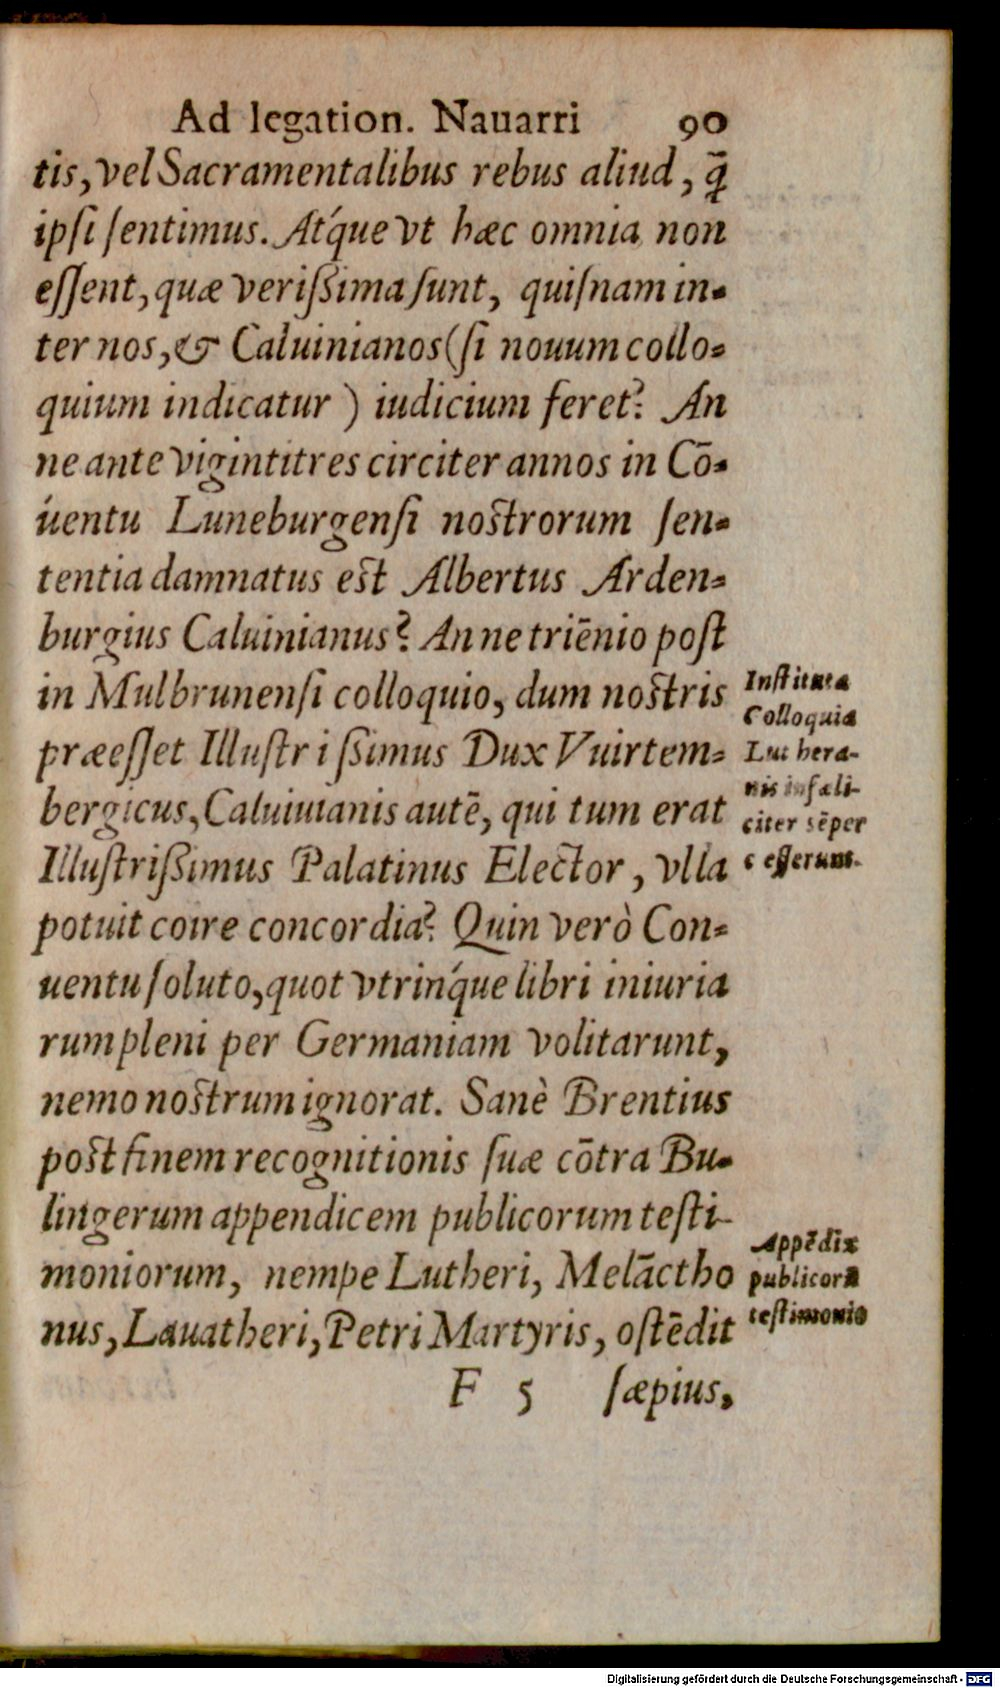 Ad legation. Nauarri 90
tis, vel Sacramentalibus rebus aliud, q̄
ipſi ſentimus. Atq́ue vt hæc omnia non
eſſent, quæ verißima ſunt, quiſnam in-
ter nos, & Caluinianos (ſi nouum collo-
quium indicatur) iudicium feret? An
ne ante vigintitres circiter annos in Cō-
úentu Luneburgenſi noſtrorum ſen-
tentia damnatus eſt Albertus Arden-
burgius Caluinianus? An ne triēnio poſt
in Mulbrunenſi colloquio, dum noſtris
præeſſet Illuſtrißimus Dux Vuirtem-
bergicus, Caluiuianis autē, qui tum erat
Illuſtrißimus Palatinus Elector, vlla
potuit coire concordia? Quin verò Con-
uentu ſoluto, quot vtrinq́ue libri iniuria
rum pleni per Germaniam volitarunt,
nemo noſtrum ignorat. Sanè Brentius
poſt finem recognitionis ſuæ cōtra Bu-
lingerum appendicem publicorum teſti-
moniorum, nempe Lutheri, Melāctho
nus, Lauatheri, Petri Martyris, oſtēdit
F 5 ſæpius,
Inſtituta
Colloquia
Lut hera-
nis infæli-
citer sēper
c eſſerunt.
Appēdix
publicorū
teſtimonio
Digitalisierung gefördert durch die Deutsche Forschungsgemeinschaft - DFG